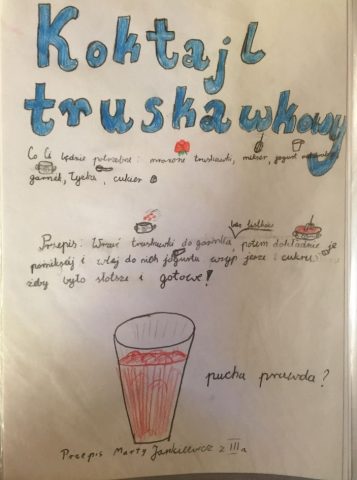 Koktajl
truskawkowy
Co Ci będzie potrzebne: mrożone truskawki, mikser, jogurt naturalny
garnek, łyżka, cukier
bez listków
Przepis: Wrzuć truskawki do garnka, potem dokładnie je
pomiksuj i wlej do nich jogurtu wsyp jeszcze cukier
żeby było słodsze i gotowe!
pycha prawda?
Przepis Marty Jankiewicz z III a